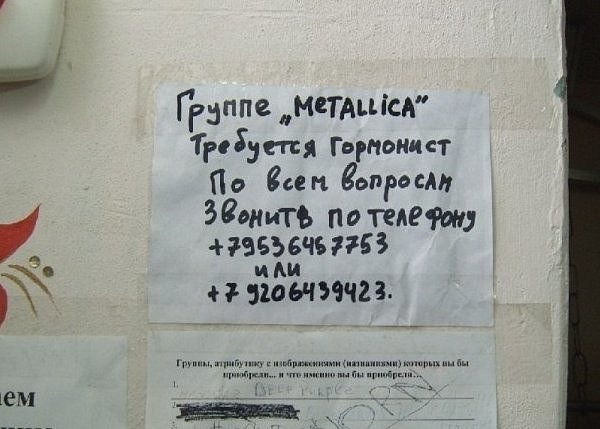 Группе „METALLiCA"
Требуется гормонист
По всем вопросам
Звонить по телефону
+79536457753
или
+79206439423.
Группы, атрибутику с изображениями (названиями) которых вы бы
приобрели... и что именно вы бы приобрели...
1. DEEP PURPLE
KORN
ем